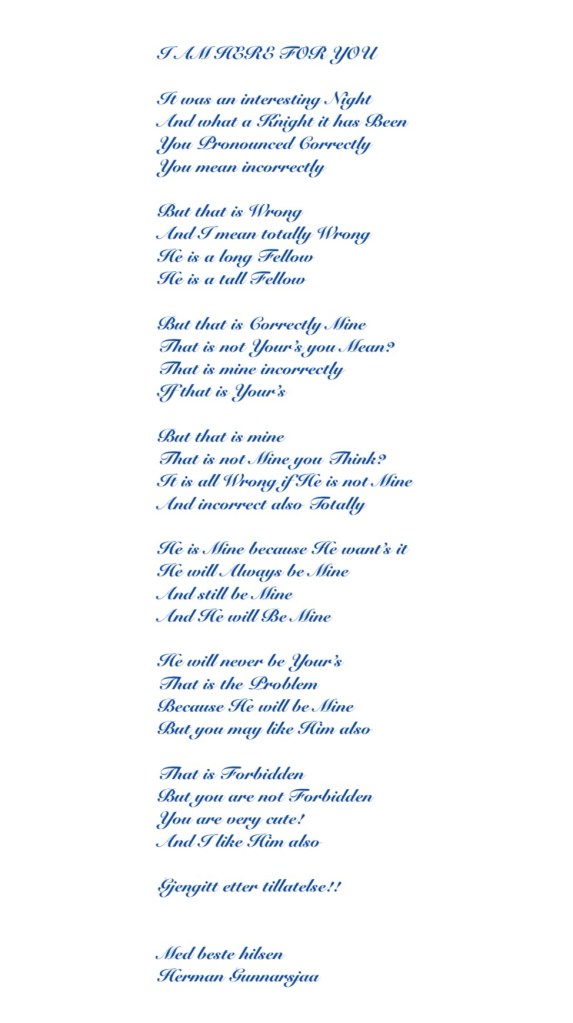 I AM HERE FOR YOU
It was an interesting Night
And what a Knight it has Been
You Pronounced Correctly
You mean incorrectly
But that is Wrong
And I mean totally Wrong
He is a long Fellow
He is a tall Fellow
But that is Correctly Mine
That is not Your's you Mean?
That is mine incorrectly
If that is Your's
But that is mine
That is not Mine you Think?
It is all Wrong if He is not Mine
And incorrect also Totally
He is Mine because He want's it
He will Always be Mine
And still be Mine
And He will Be Mine
He will never be Your's
That is the Problem
Because He will be Mine
But you may like Him also
That is Forbidden
But you are not Forbidden
You are very cute!
And I like Him also
Gjengitt etter tillatelse!!
Med beste hilsen
Herman Gunnarsjaa